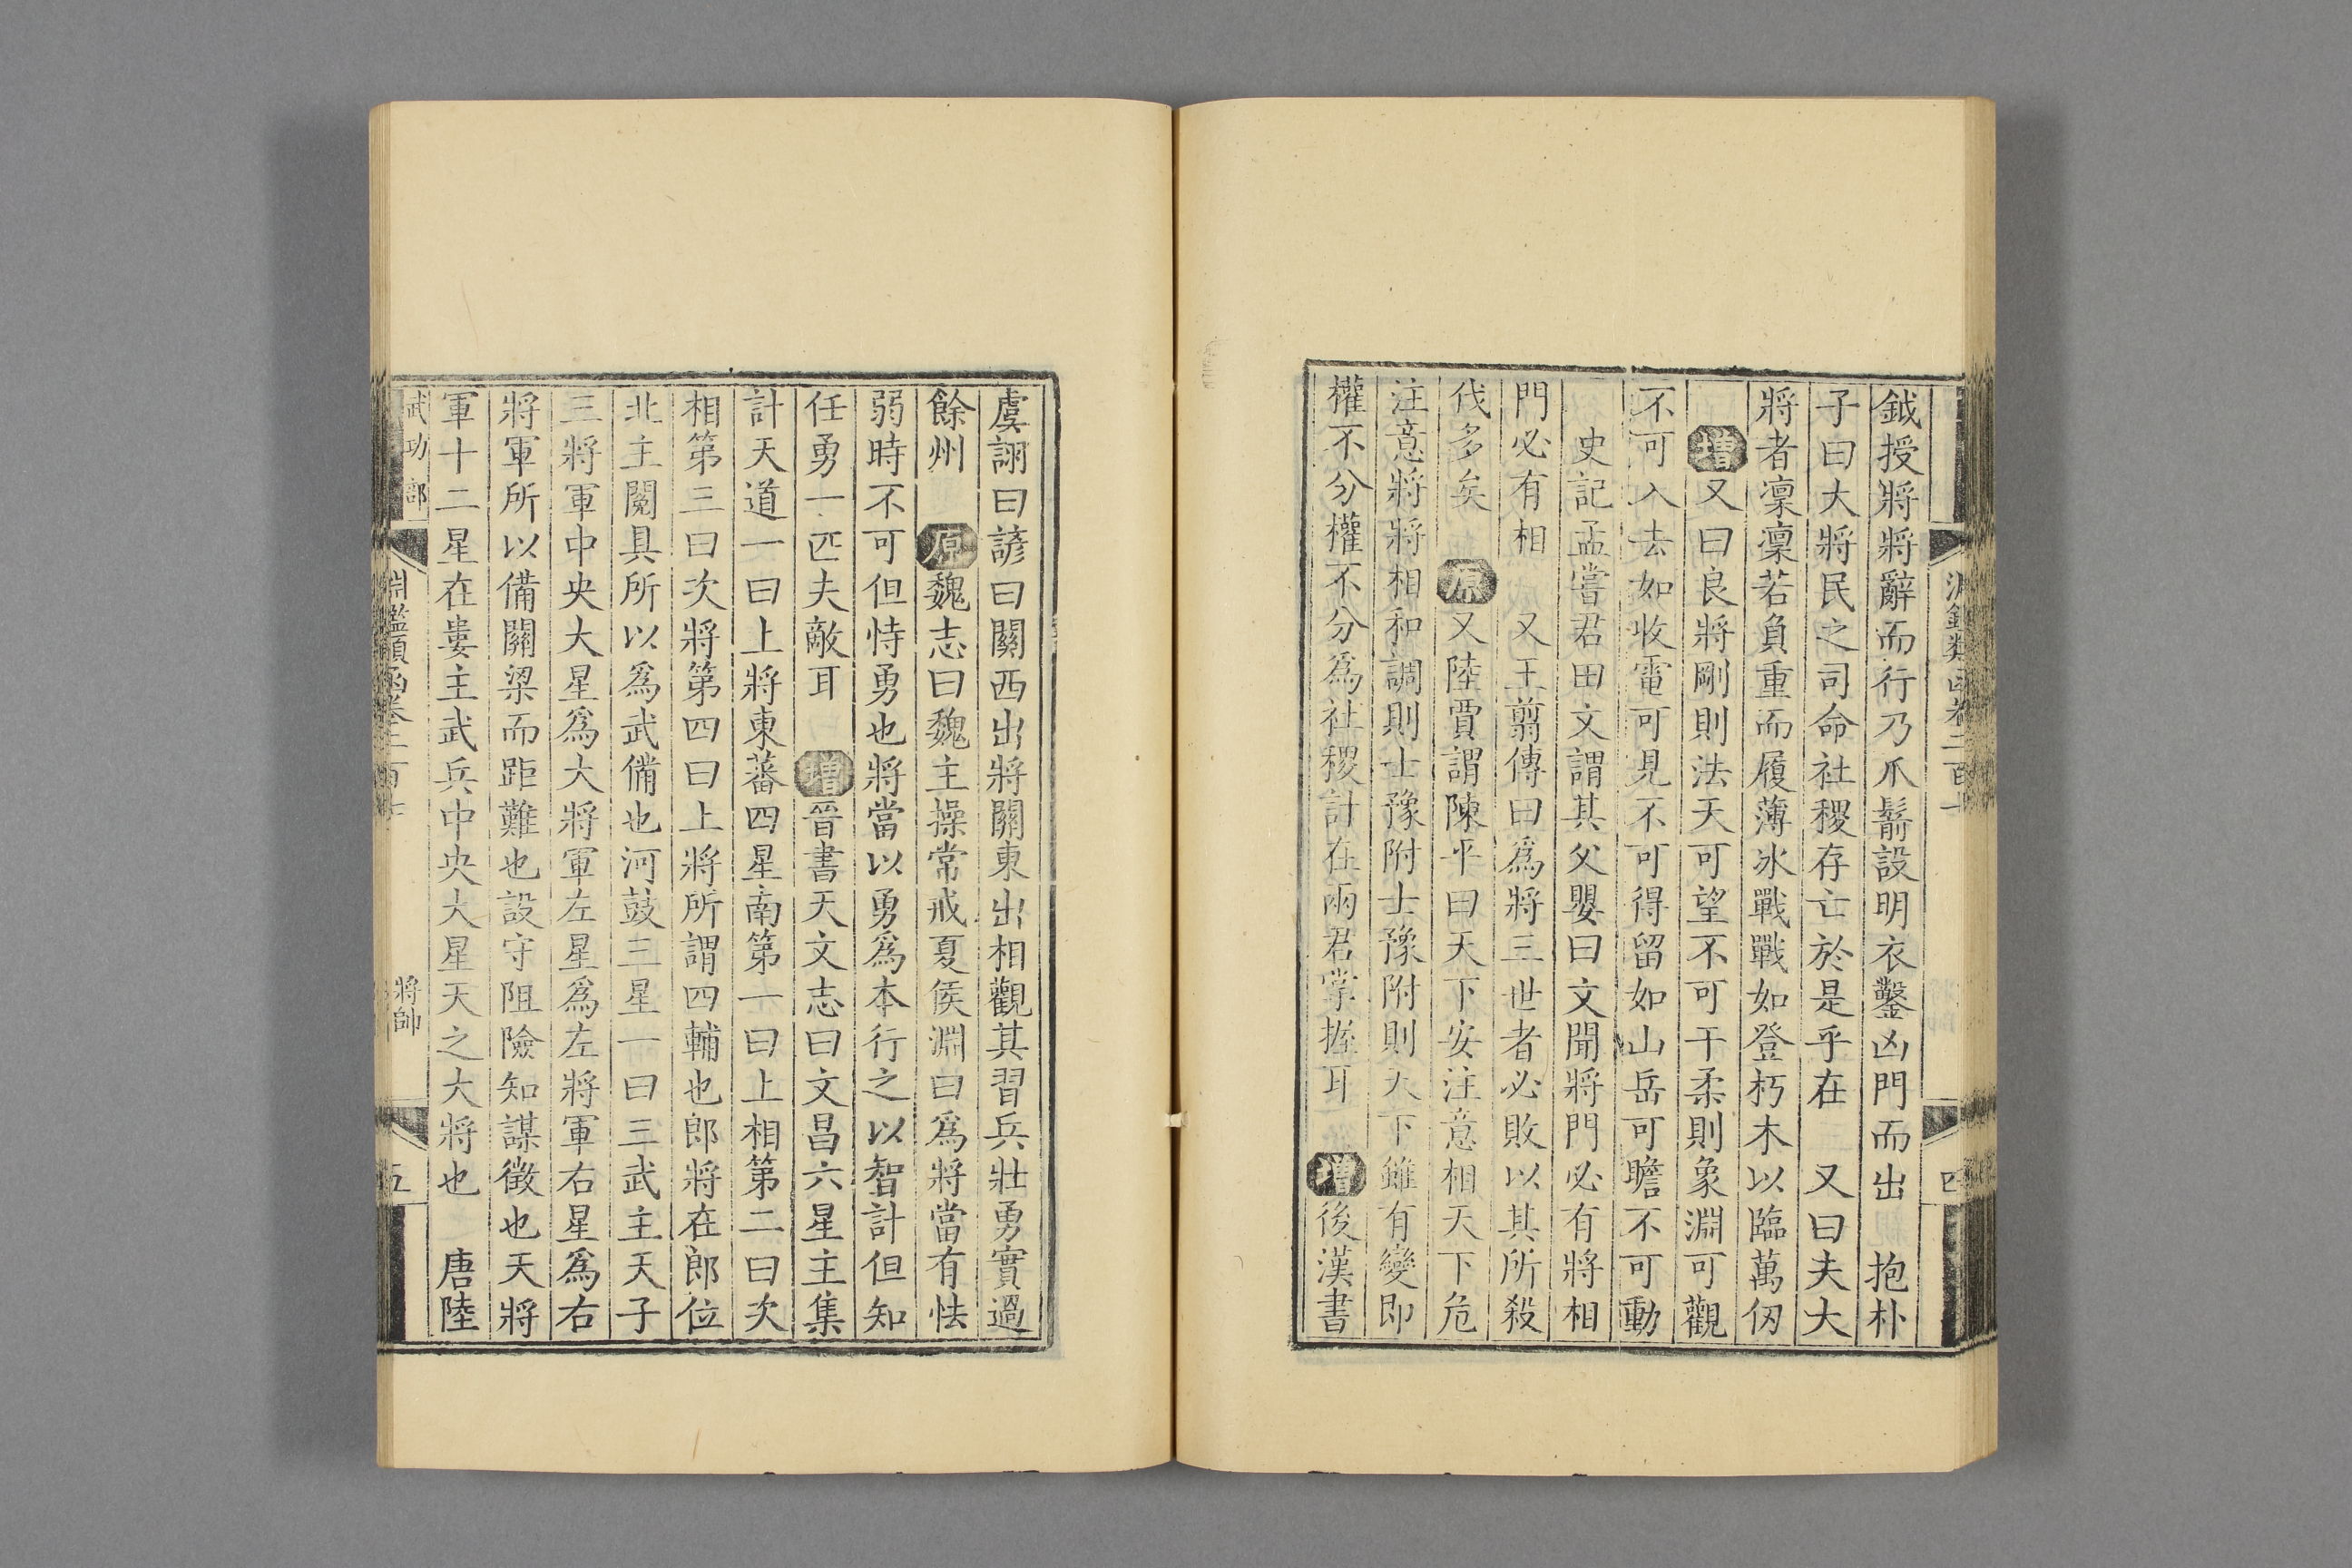 鉞授將將辭而行乃爪鬋設明衣鑿凶門而出　抱朴
子曰大將民之司命社稷存亡於是乎在　又曰夫大
將者凜凜若負重而履薄冰戰戰如登朽木以臨萬仞
增又曰良將剛則法天可望不可干柔則象淵可觀
不可入去如收電可見不可得留如山岳可瞻不可動
史記孟嘗君田文謂其父嬰曰文聞將門必有將相
門必有相　又王翦傳曰為將三世者必敗以其所殺
伐多矣　原又陸賈謂陳平曰天下安注意相天下危
注意將將相和調則士豫附士豫附則天下雖有變即
權不分權不分為社稷計在兩君掌握耳　增後漢書
虞詡曰諺曰關西出將關東出相觀其習兵壯勇實過
餘州　原魏志曰魏主操常戒夏侯淵曰為將當有怯
弱時不可但恃勇也將當以勇為本行之以智計但知
任勇一匹夫敵耳　增晉書天文志曰文昌六星主集
計天道一曰上將東蕃四星南第一曰上相第二曰次
相第三曰次將第四曰上將所謂四輔也郎將在郎位
北主閱具所以為武備也河鼓三星一曰三武主天子
三將軍中央大星為大將軍左星為左將軍右星為右
將軍所以備關梁而距難也設守阻險知謀徵也天將
軍十二星在婁主武兵中央大星天之大將也　唐陸
武功部
淵鑑類函卷二百七
將帥
五